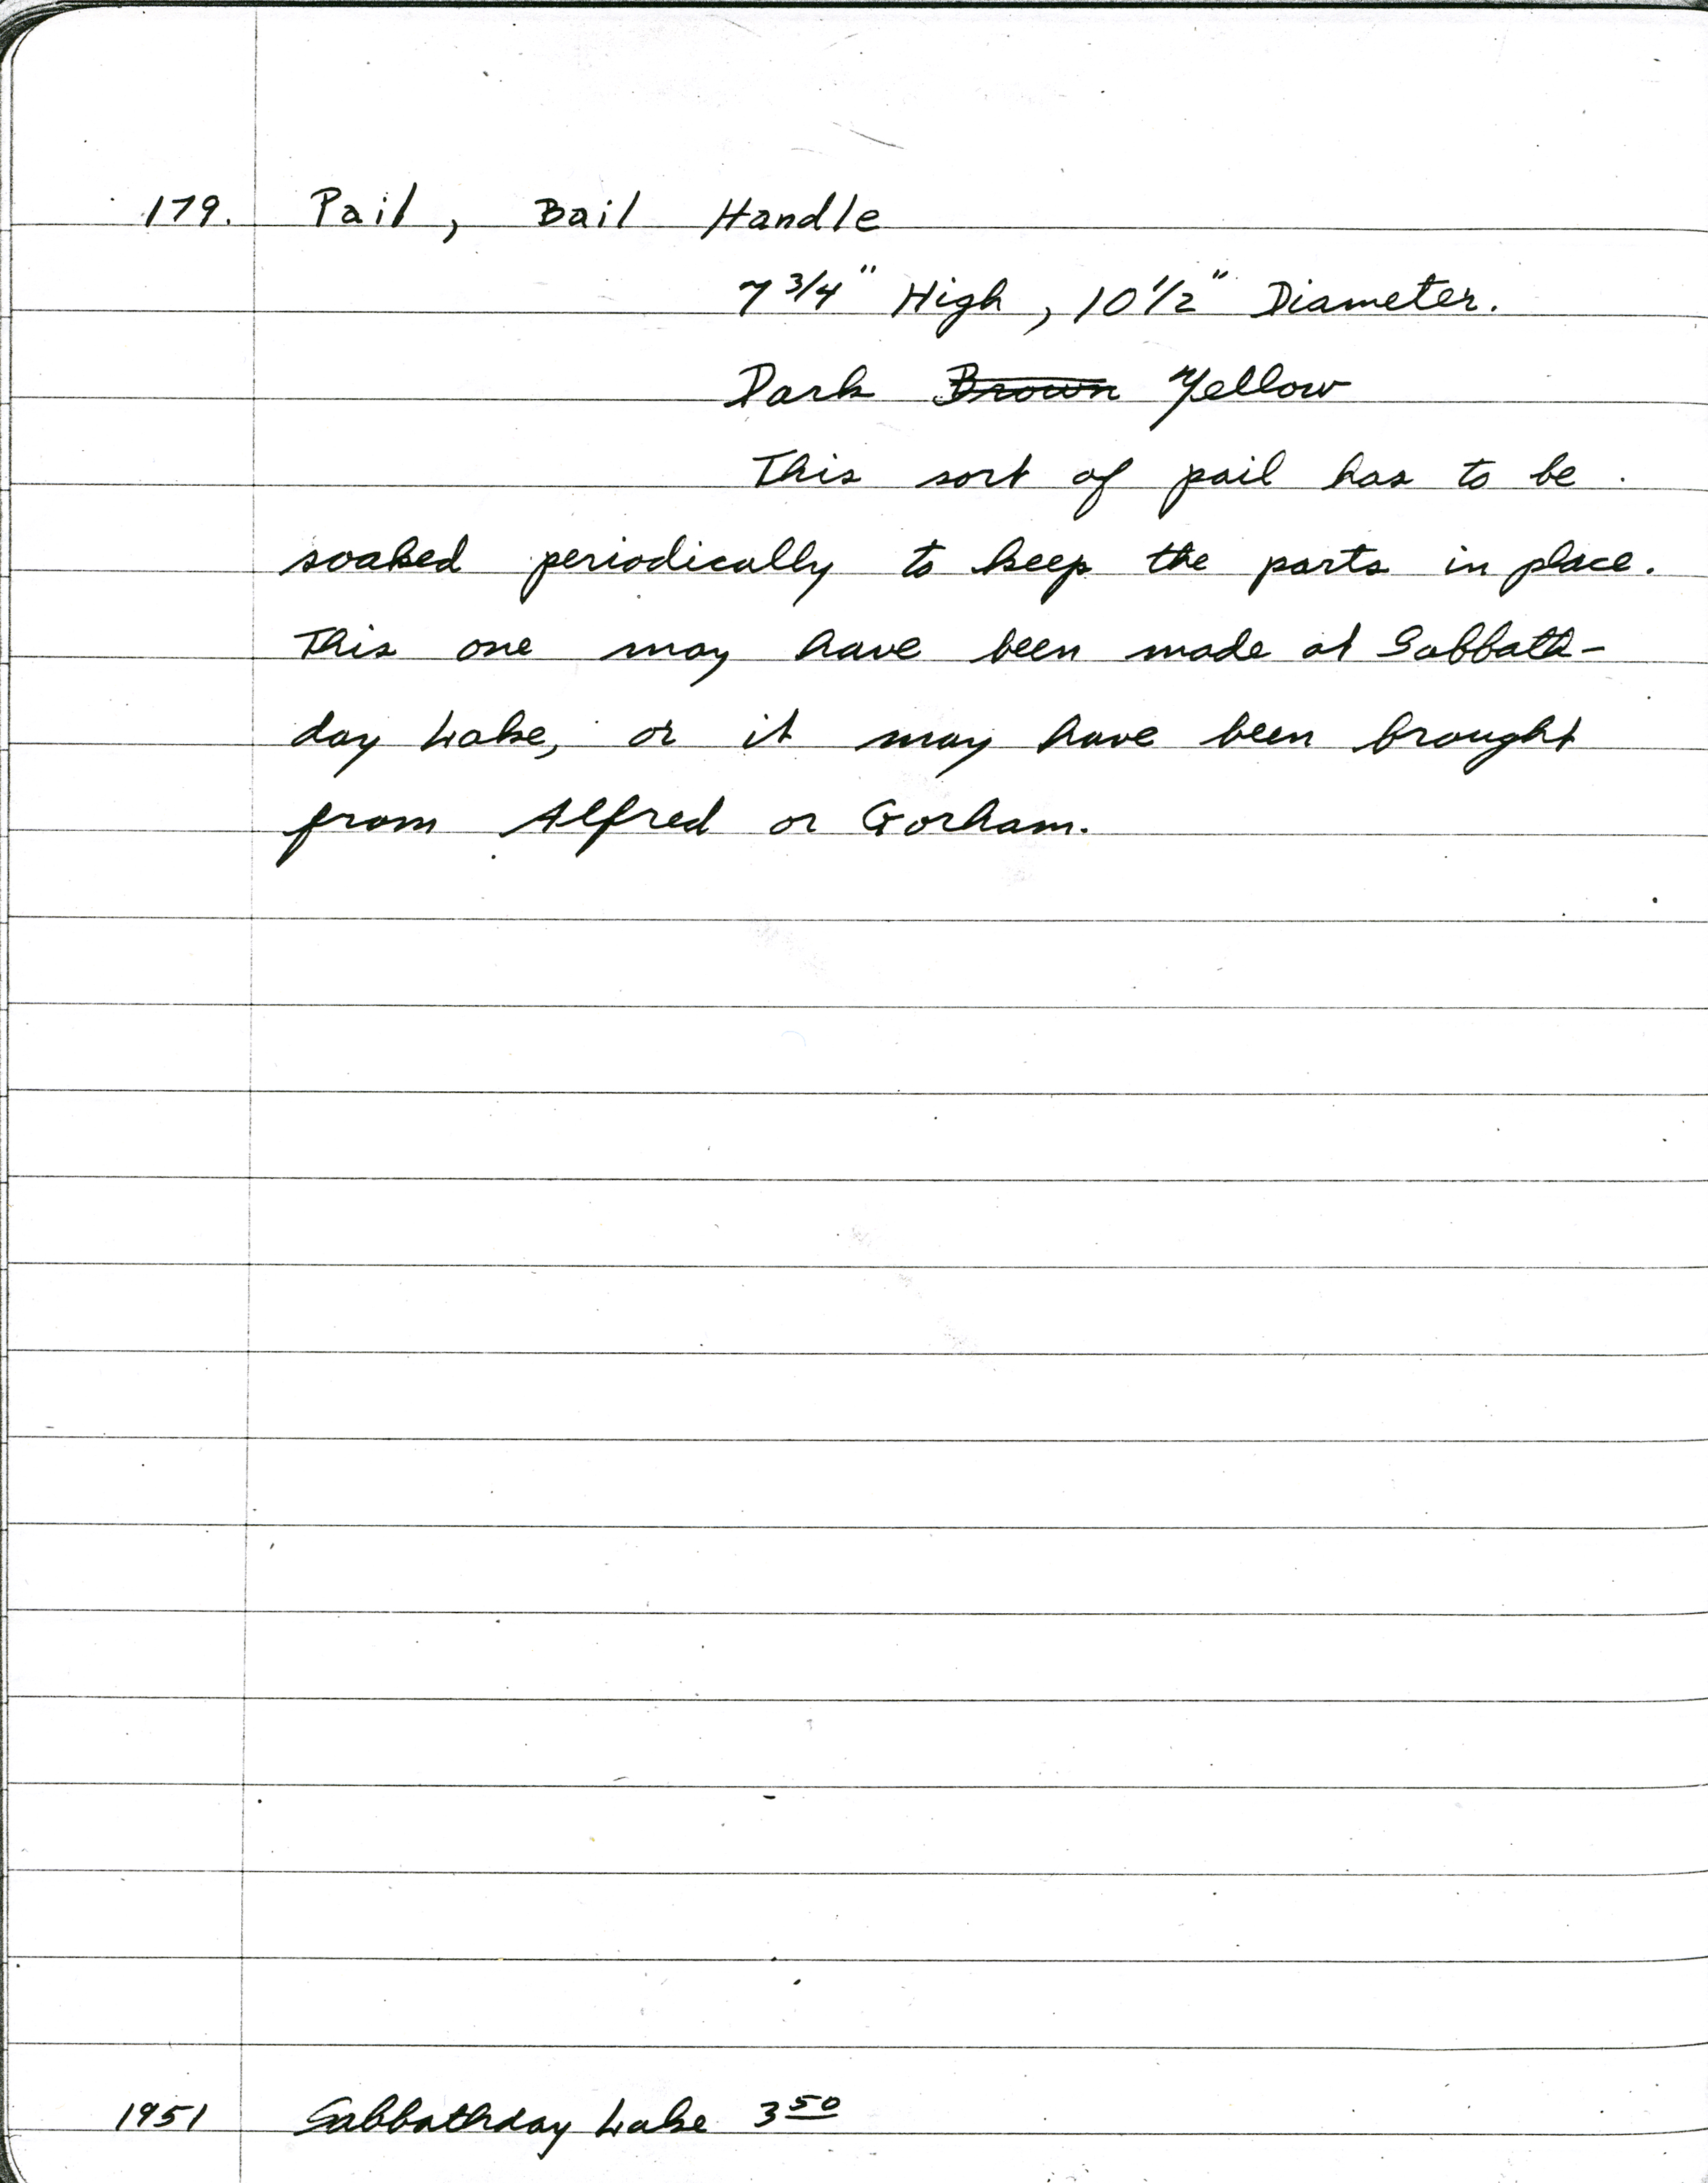 179. Pail, Bail Handle
7 3/4" High, 10 1/2" Diameter.
Dark Brown Yellow
This sort of pail has to be
soaked periodically to keep the parts in place.
This one may have been made at Sabbath-
day Lake, or it may have been brought
from Alfred or Gorham.
1951 Sabbathday Lake 3 50